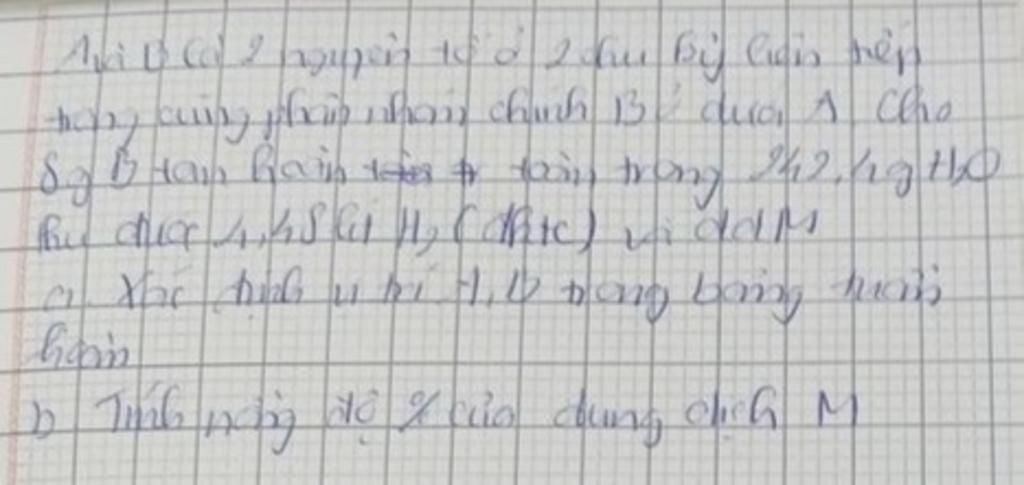 A và B là 2 nguyên tố ở 2 chu kỳ liên tiếp
trong cùng phân nhóm chính B ở dưới A Cho
8g B tan hoàn toàn trong 242,4g H2O
thu được 4,48 lít H2 (đktc) và ddM
a Xác định vị trí A, B trong bảng tuần
hoàn
b Tính nồng độ % của dung dịch M